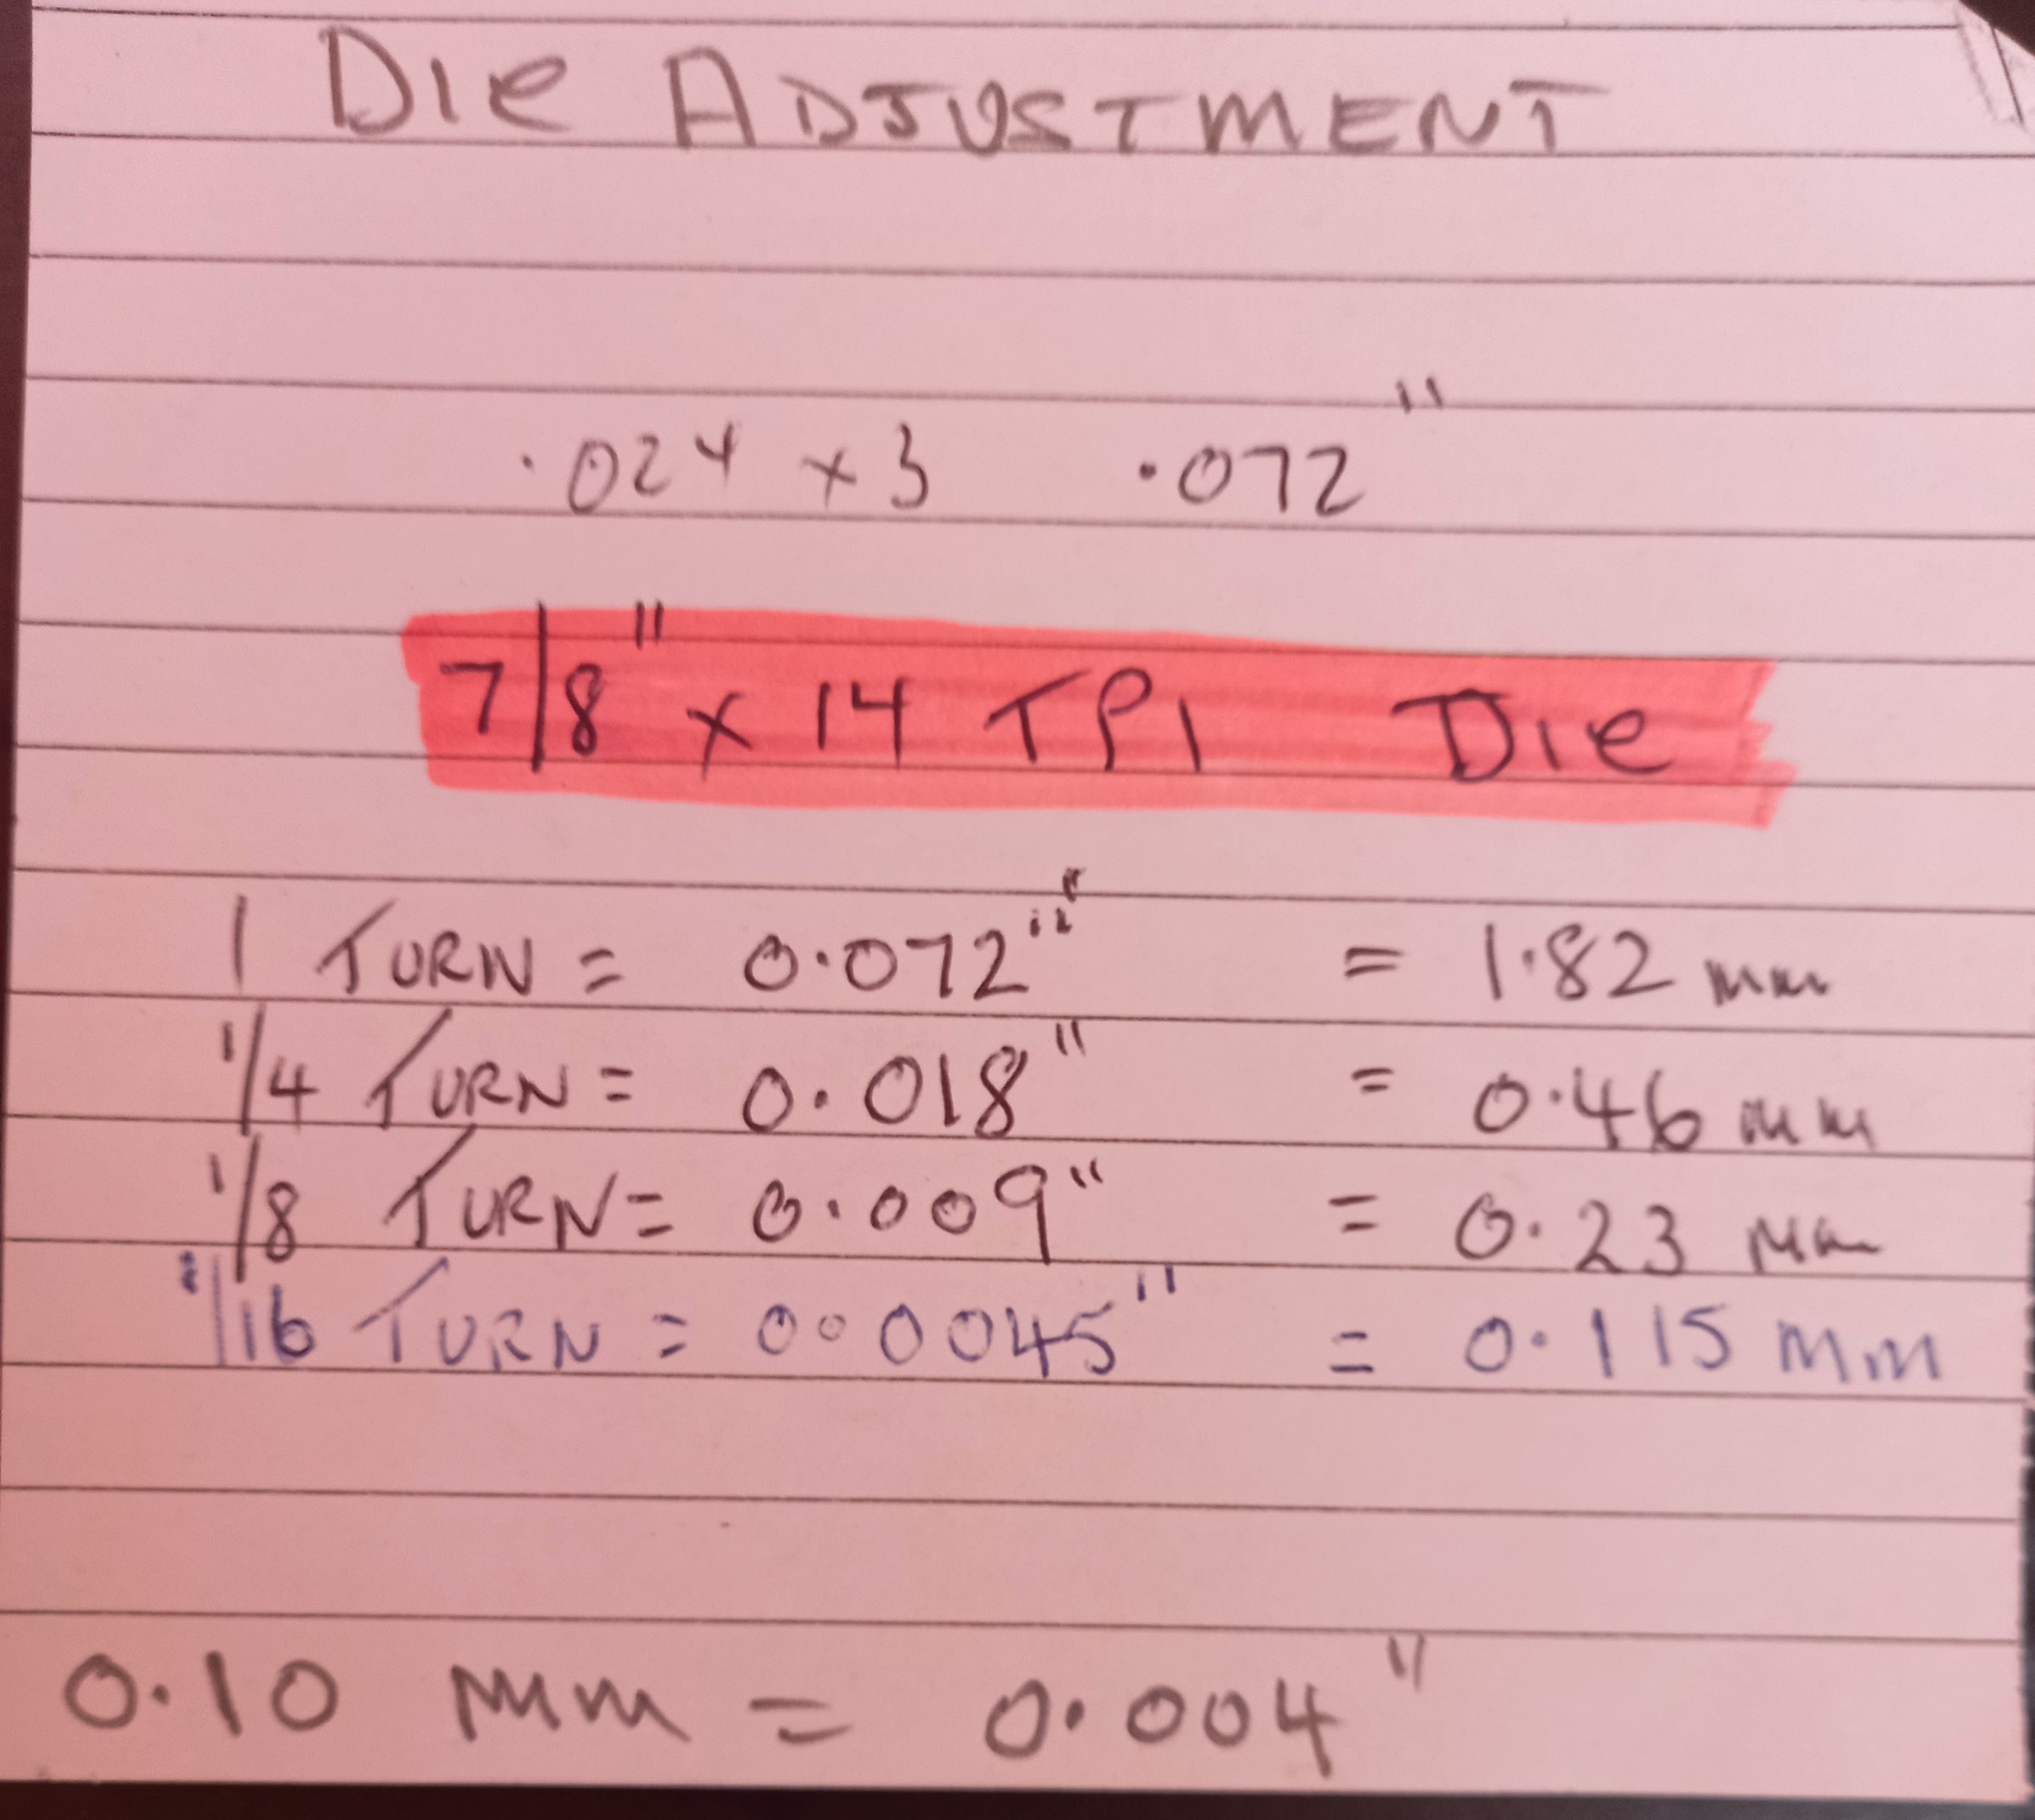 DIE ADJUSTMENT
.024 x 3 .072"
7/8" x 14 TPI DIE
1 TURN = 0.072" = 1.82 mm
1/4 TURN = 0.018" = 0.46 mm
1/8 TURN = 0.009" = 0.23 mm
1/16 TURN = 0.0045" = 0.115 mm
0.10 mm = 0.004"